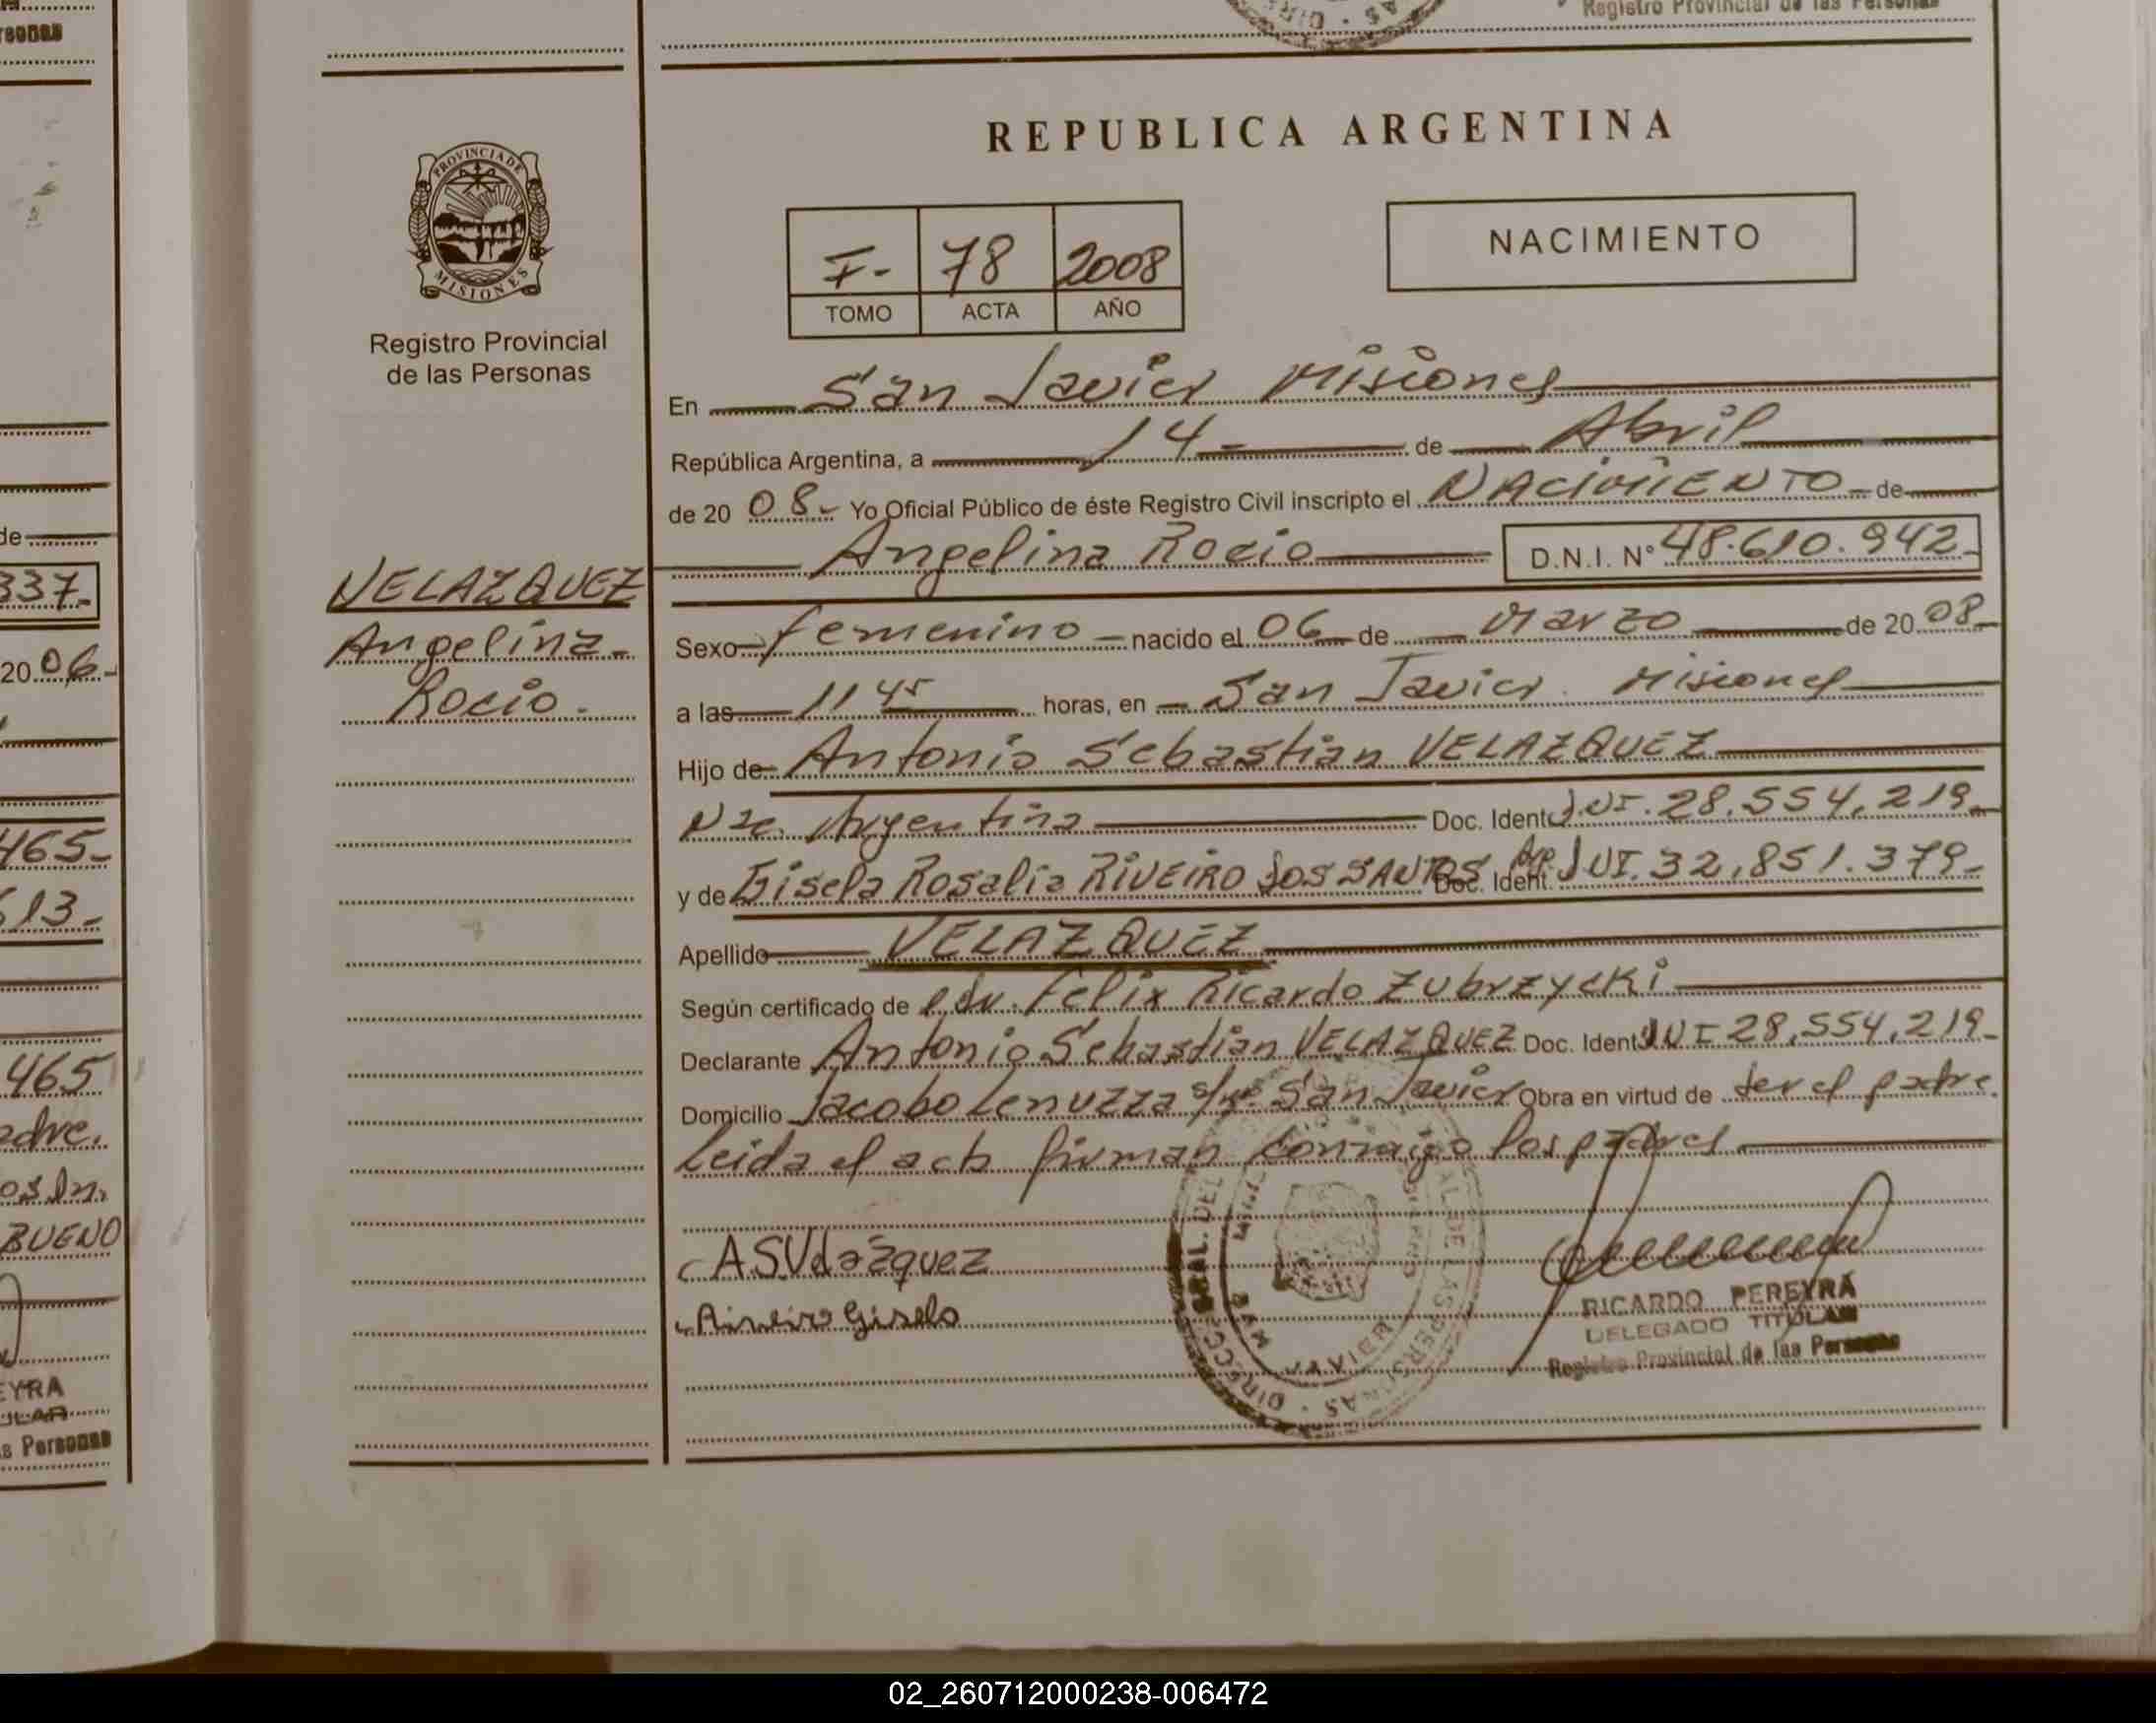 Registro Provincial de las Personas
REPUBLICA ARGENTINA
PROVINCIA DE
MISIONES
Registro Provincial
de las Personas
I- 78 2008
TOMO ACTA AÑO
NACIMIENTO
En San Javier Misiones
República Argentina, a 14- de Abril
de 20 08- Yo Oficial Público de éste Registro Civil inscripto el NACIMIENTO de
Angelina Rocio D.N.I. N° 48.610.942
VELAZQUEZ
Angelina
Rocio.
Sexo femenino nacido el 06 de Marzo de 20 08
a las 11 45 horas, en San Javier. Misiones
Hijo de Antonio Sebastian VELAZQUEZ
Nac. Argentina Doc. Ident. DNI. 28.554.219
y de Gisela Rosalia RIVEIRO DOS SANTOS Arg. Doc. Ident. DNI. 32.851.379
Apellido VELAZQUEZ
Según certificado de Felix Ricardo Zubrzycki
Declarante Antonio Sebastian VELAZQUEZ Doc. Ident. DNI 28.554.219
Domicilio Jacobo Lenuzza s/n° San Javier Obra en virtud de ser el padre.
Leida el acta firman conmigo los padres
ASVelazquez
Riveiro Gisela
RICARDO PEREYRA
DELEGADO TITULAR
Registro Provincial de las Personas
337-
20 06-
465-
613-
465
BUENO
02_260712000238-006472